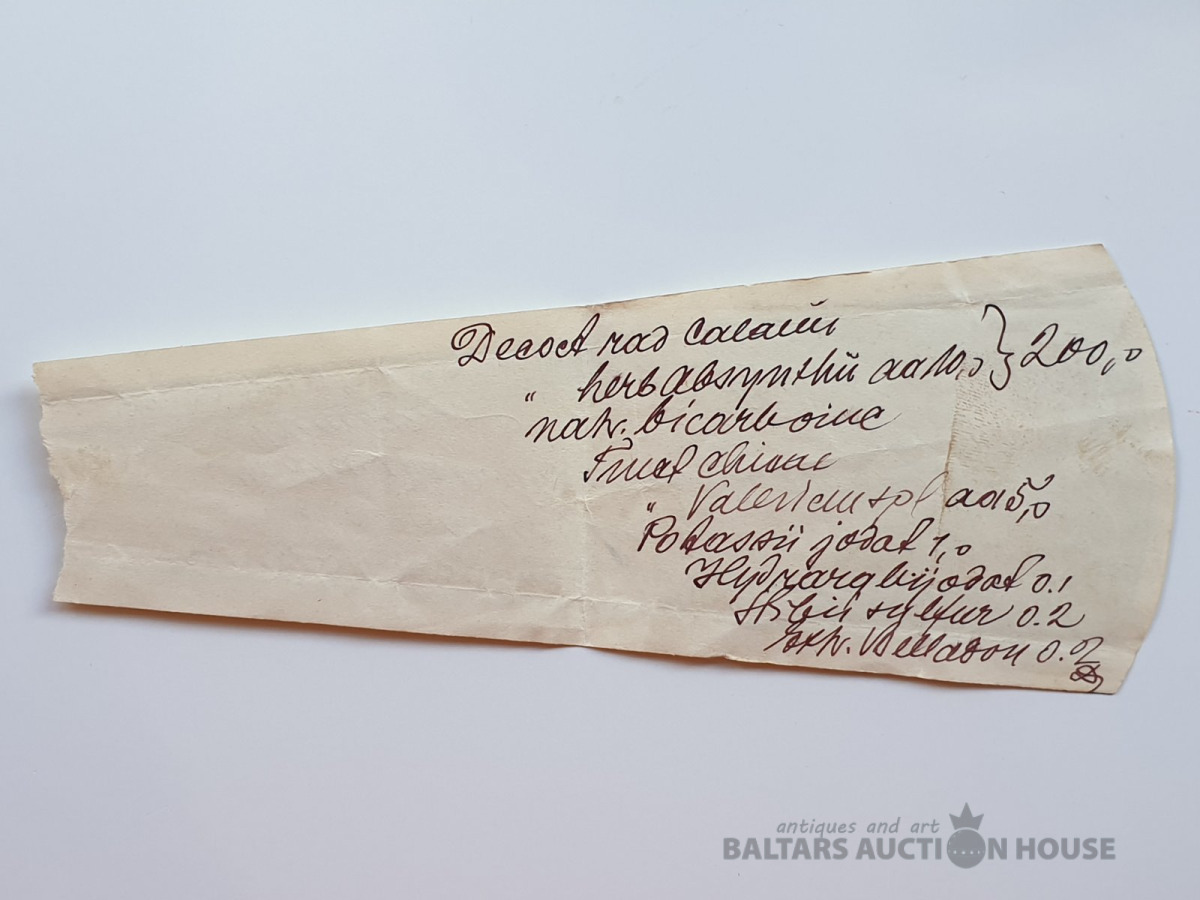 Decoct rad Calami
" herb absynthii aa 10,0 } 200,0
natr. bicarbonic
Tinct chinae
" Valerian spl aa 5,0
Potassii jodat 1,0
Hydrarg bijodat 0.1
Stibii sylfur 0.2
extr. Belladon 0.2
antiques and art
BALTARS AUCTION HOUSE